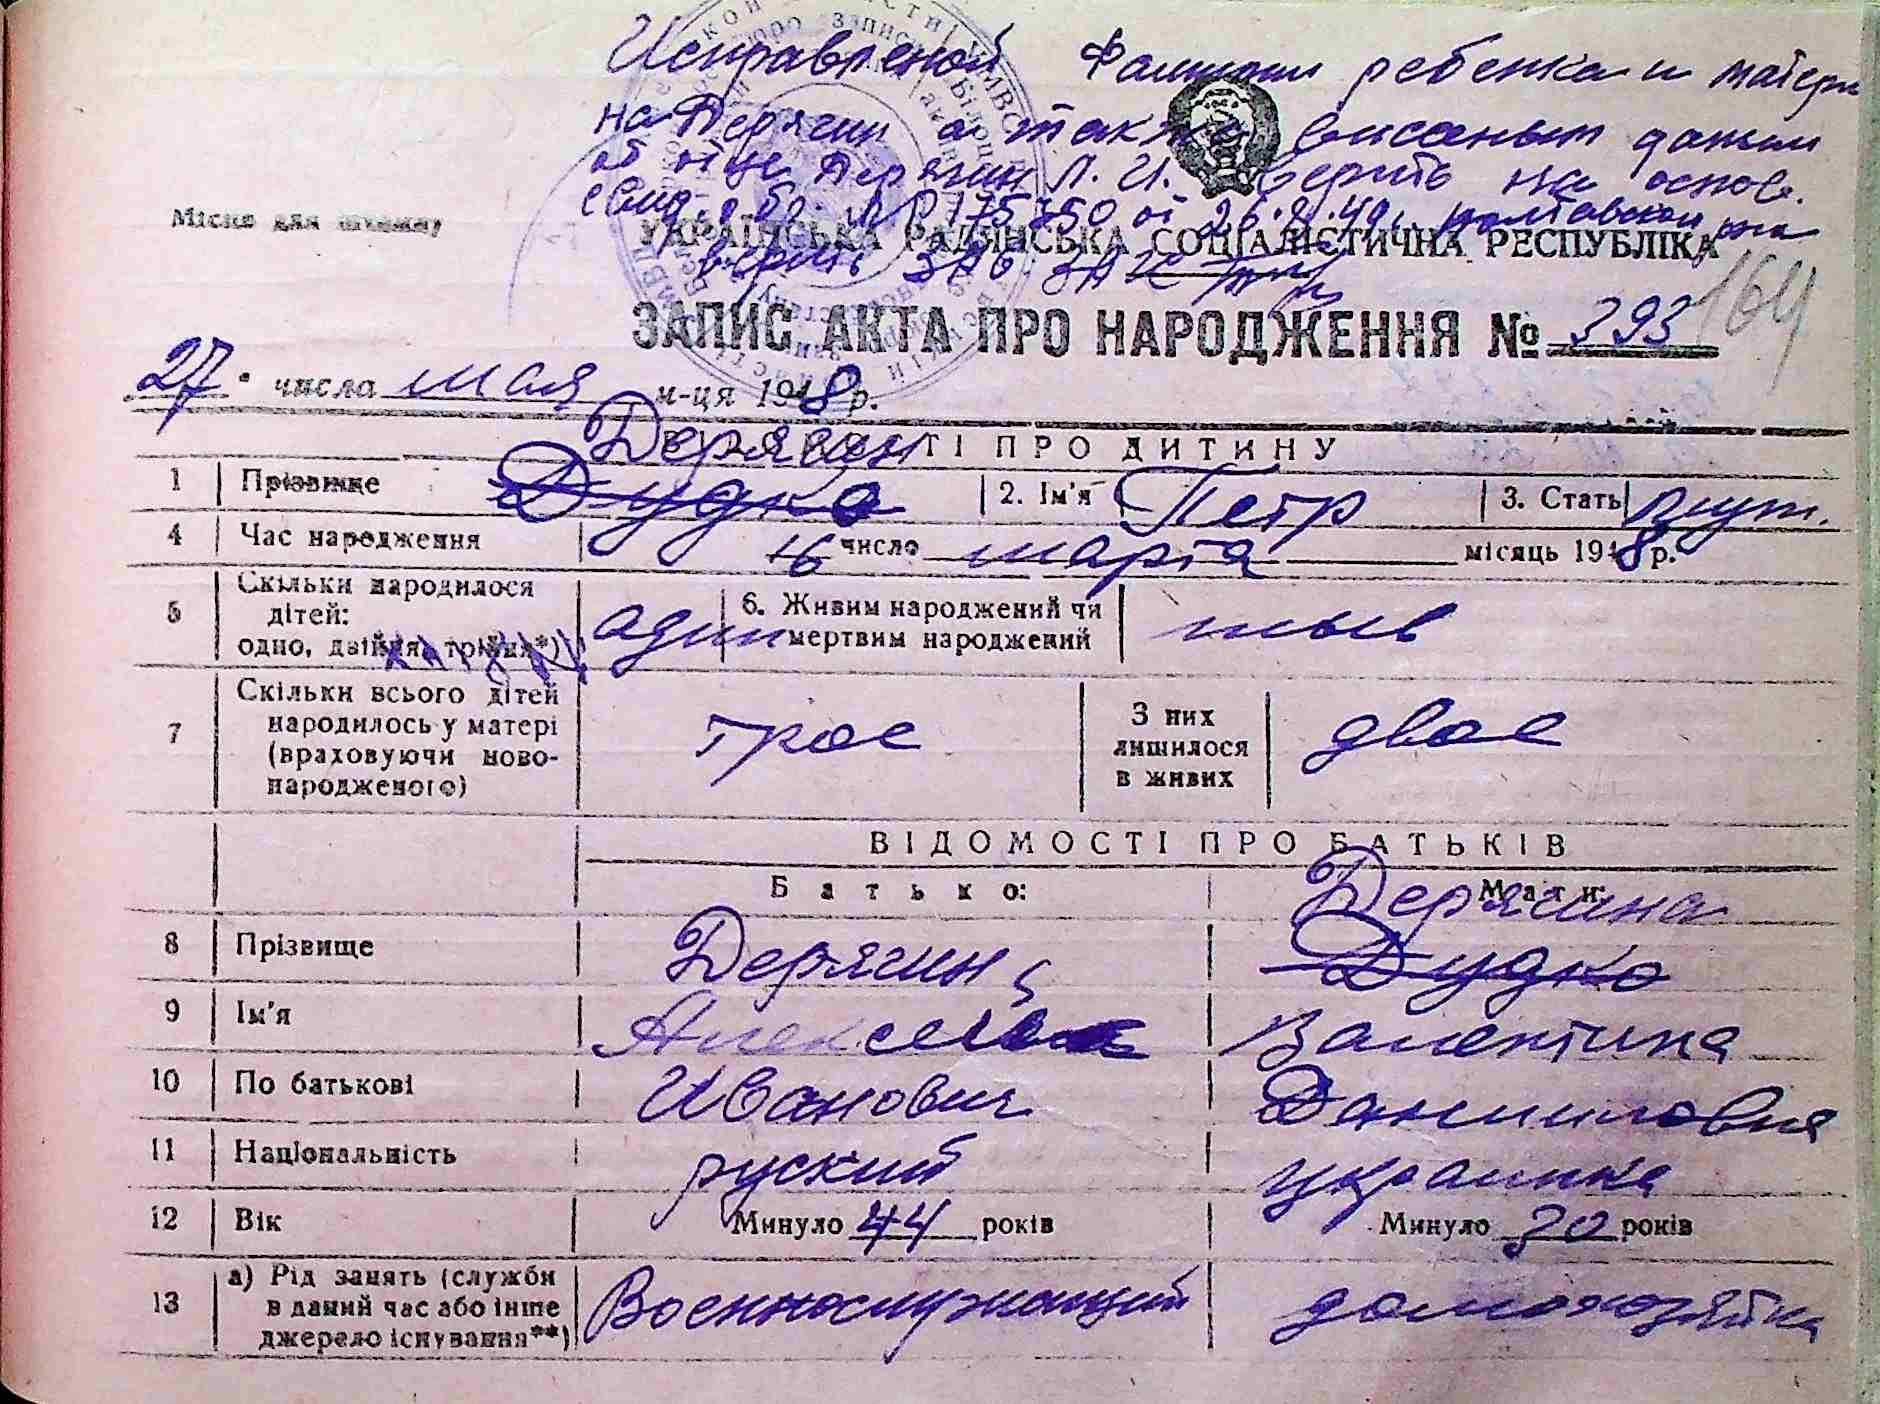 Исправленой Фамилии ребенка и матери
на Дерягин а также вписаным даным
об отце Дерягин А. И. верить на основ.
свид. о бр.
УКРАЇНСЬКА РАДЯНСЬКА СОЦІАЛІСТИЧНА РЕСПУБЛІКА
Місце для штампу
верить ЗАВ ЗАГС
ЗАПИС АКТА ПРО НАРОДЖЕННЯ № 393
164
27 числа мая м-ця 1948 р.
Дерягин
ТІ ПРО ДИТИНУ
1 Прізвище Дудко 2. Ім'я Петр 3. Стать муж.
4 Час народження 16 число марта місяць 1948 р.
5 Скільки народилося
дітей:
одно, двійня, трійня*) один 6. Живим народжений чи
мертвим народжений жыв
7 Скільки всього дітей
народилось у матері
(враховуючи ново-
народженого) трое З них
лишилося
в живих двое
ВІДОМОСТІ ПРО БАТЬКІВ
Батько: Мати:
Дерягина
8 Прізвище Дерягин Дудко
9 Ім'я Алексей Валентина
10 По батькові Иванович Даниловна
11 Національність руский украинка
12 Вік Минуло 44 років Минуло 30 років
13 а) Рід занять (служби
в даний час або інше
джерело існування**) Военнослужащий домохозяйка